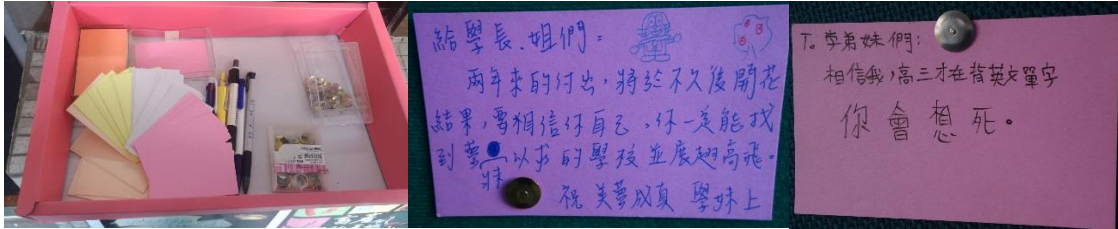 給學長、姐們：
兩年來的付出，將於不久後開花
結果，要相信你自己，你一定能找
到夢寐以求的學校並展翅高飛。
祝 美夢成真 學妹上
To 學弟妹們：
相信我，高三才在背英文單字
你會想死。